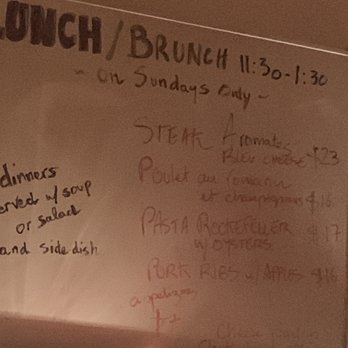 LUNCH / BRUNCH 11:30-1:30
~ on Sundays Only ~
STEAK Aromates
BLEU CHEESE $23
dinners
served w/ soup
or salad
and side dish
Poulet au romarin
et champignons $16
PASTA ROCKEFELLER $17
w/ OYSTERS
PORK RIBS w/ APPLES $16